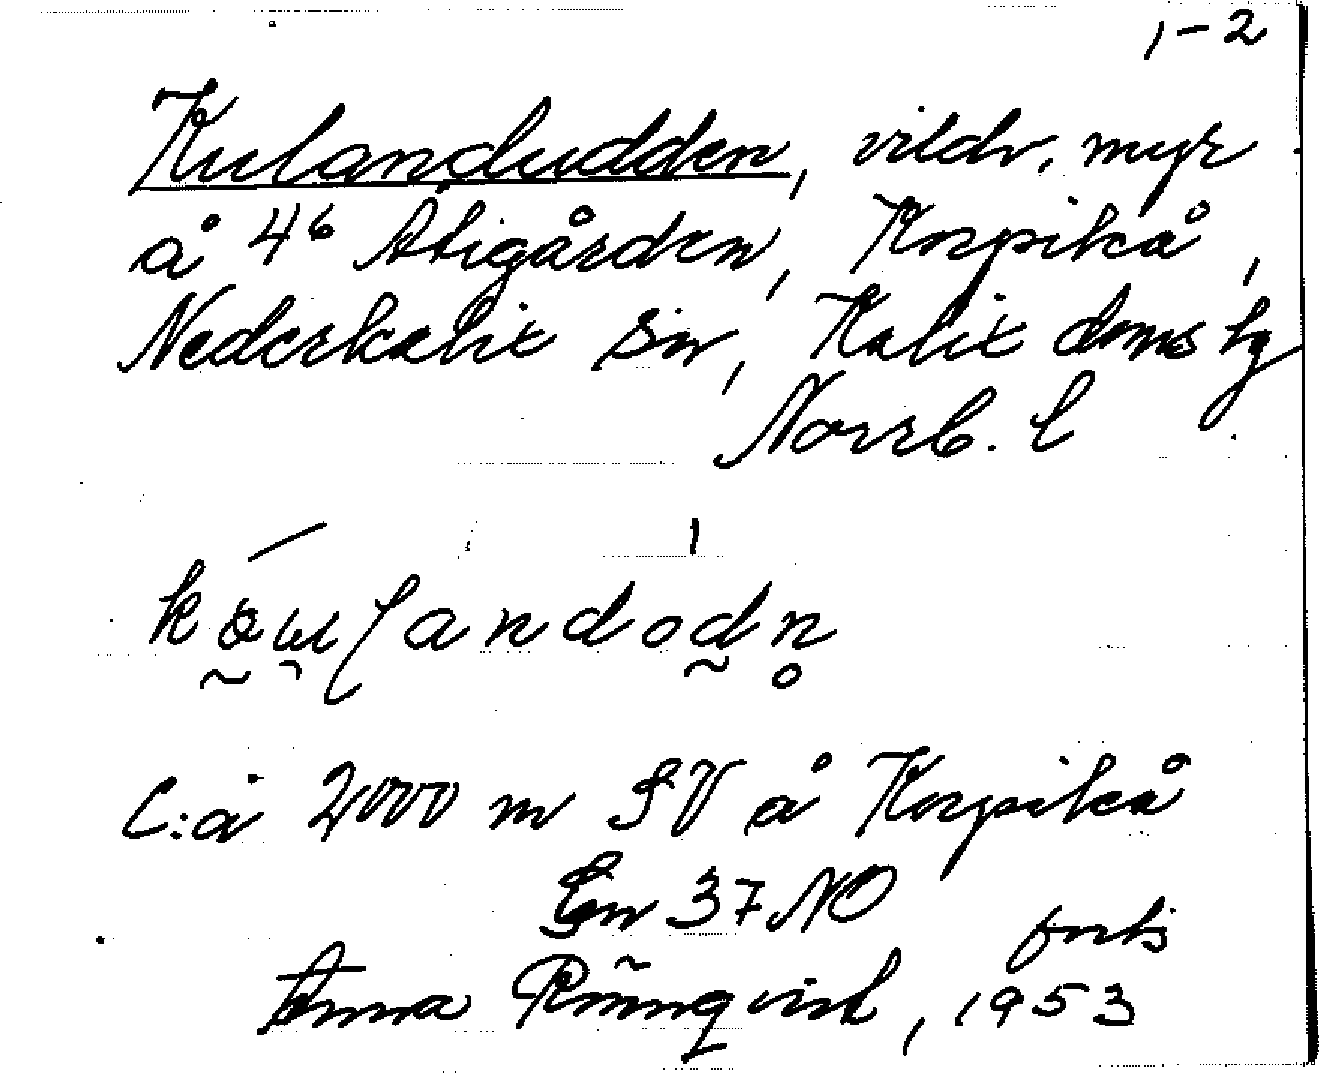 1-2
Kulandudden, vildv. myr
å 4⁶ Åbigården, Korpikå,
Nederkalix sn, Kalix doms hg
Norrb. l
C:a 2000 m SV å Korpikå
Gen 37 NO
forts
Anna Rönnqvist, 1953